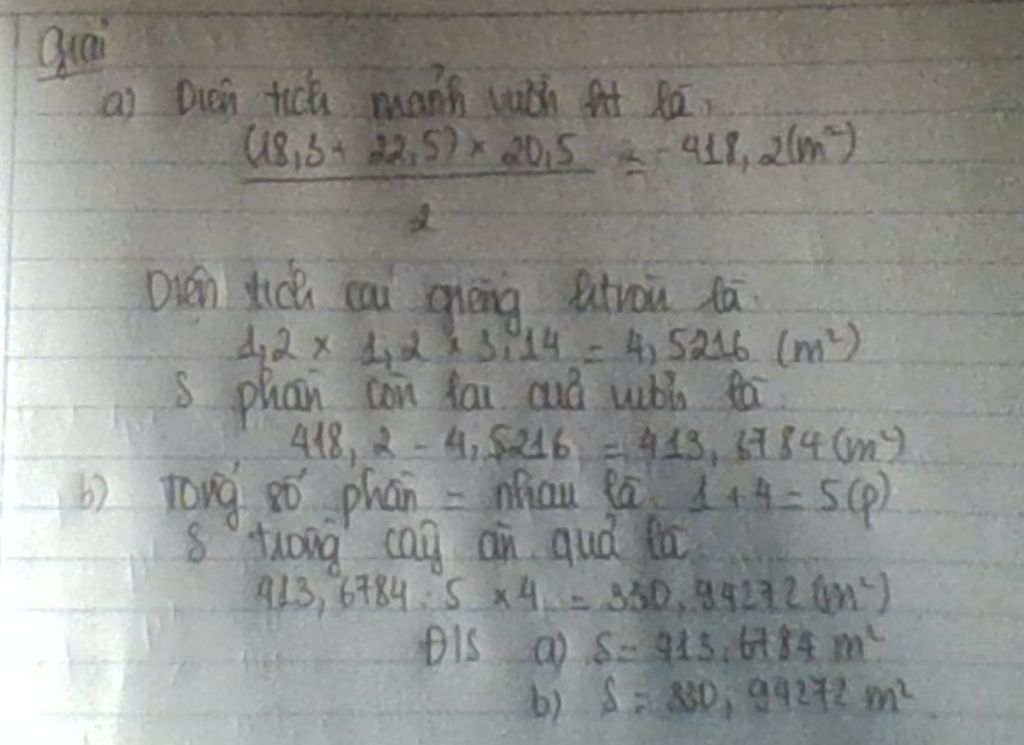 Giải
a) Diện tích mảnh vườn ht là,
(18,3 + 22,5) × 20,5 = 418,2(m²)
2
Diện tích cái giếng htròn là
1,2 × 1,2 × 3,14 = 4,5216 (m²)
S phần còn lại quả vườn là
418,2 - 4,5216 = 413,6784(m²)
b) Tổng số phần = nhau là. 1 + 4 = 5(p)
S trồng cây ăn quả là
413,6784 : 5 × 4 = 330,94272(m²)
Đ/S a) S = 413,6784 m²
b) S = 330,94272 m²